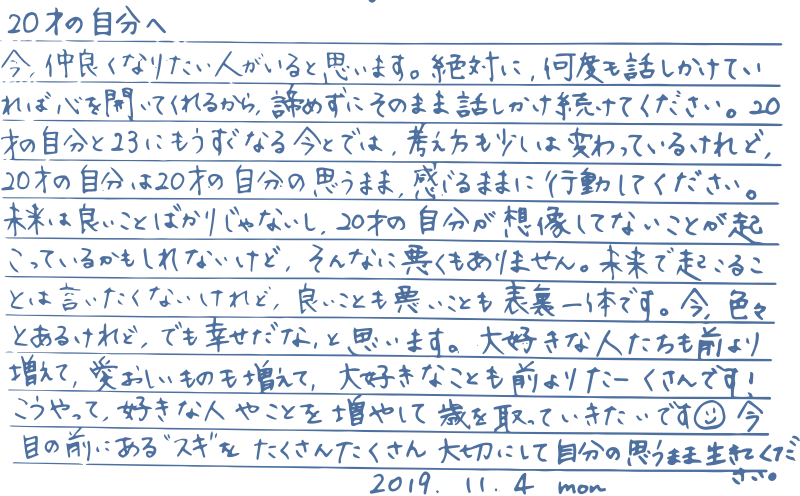 20才の自分へ
今、仲良くなりたい人がいると思います。絶対に、何度も話しかけてい
れば心を開いてくれるから、諦めずにそのまま話しかけ続けてください。20
才の自分と23にもうすぐなる今とでは、考え方も少しは変わっているけれど、
20才の自分は20才の自分の思うまま、感じるままに行動してください。
未来は良いことばかりじゃないし、20才の自分が想像してないことが起
こっているかもしれないけど、そんなに悪くもありません。未来で起こるこ
とは言いたくないけれど、良いことも悪いことも表裏一体です。今、色々
とあるけれど、でも幸せだな、と思います。大好きな人たちも前より
増えて、愛おしいものも増えて、大好きなことも前よりたーくさんです!
こうやって、好きな人やことを増やして歳を取っていきたいです☺ 今
目の前にある"スキ"を たくさんたくさん 大切にして自分の思うまま生きてくだ
さい。
2019. 11. 4 mon